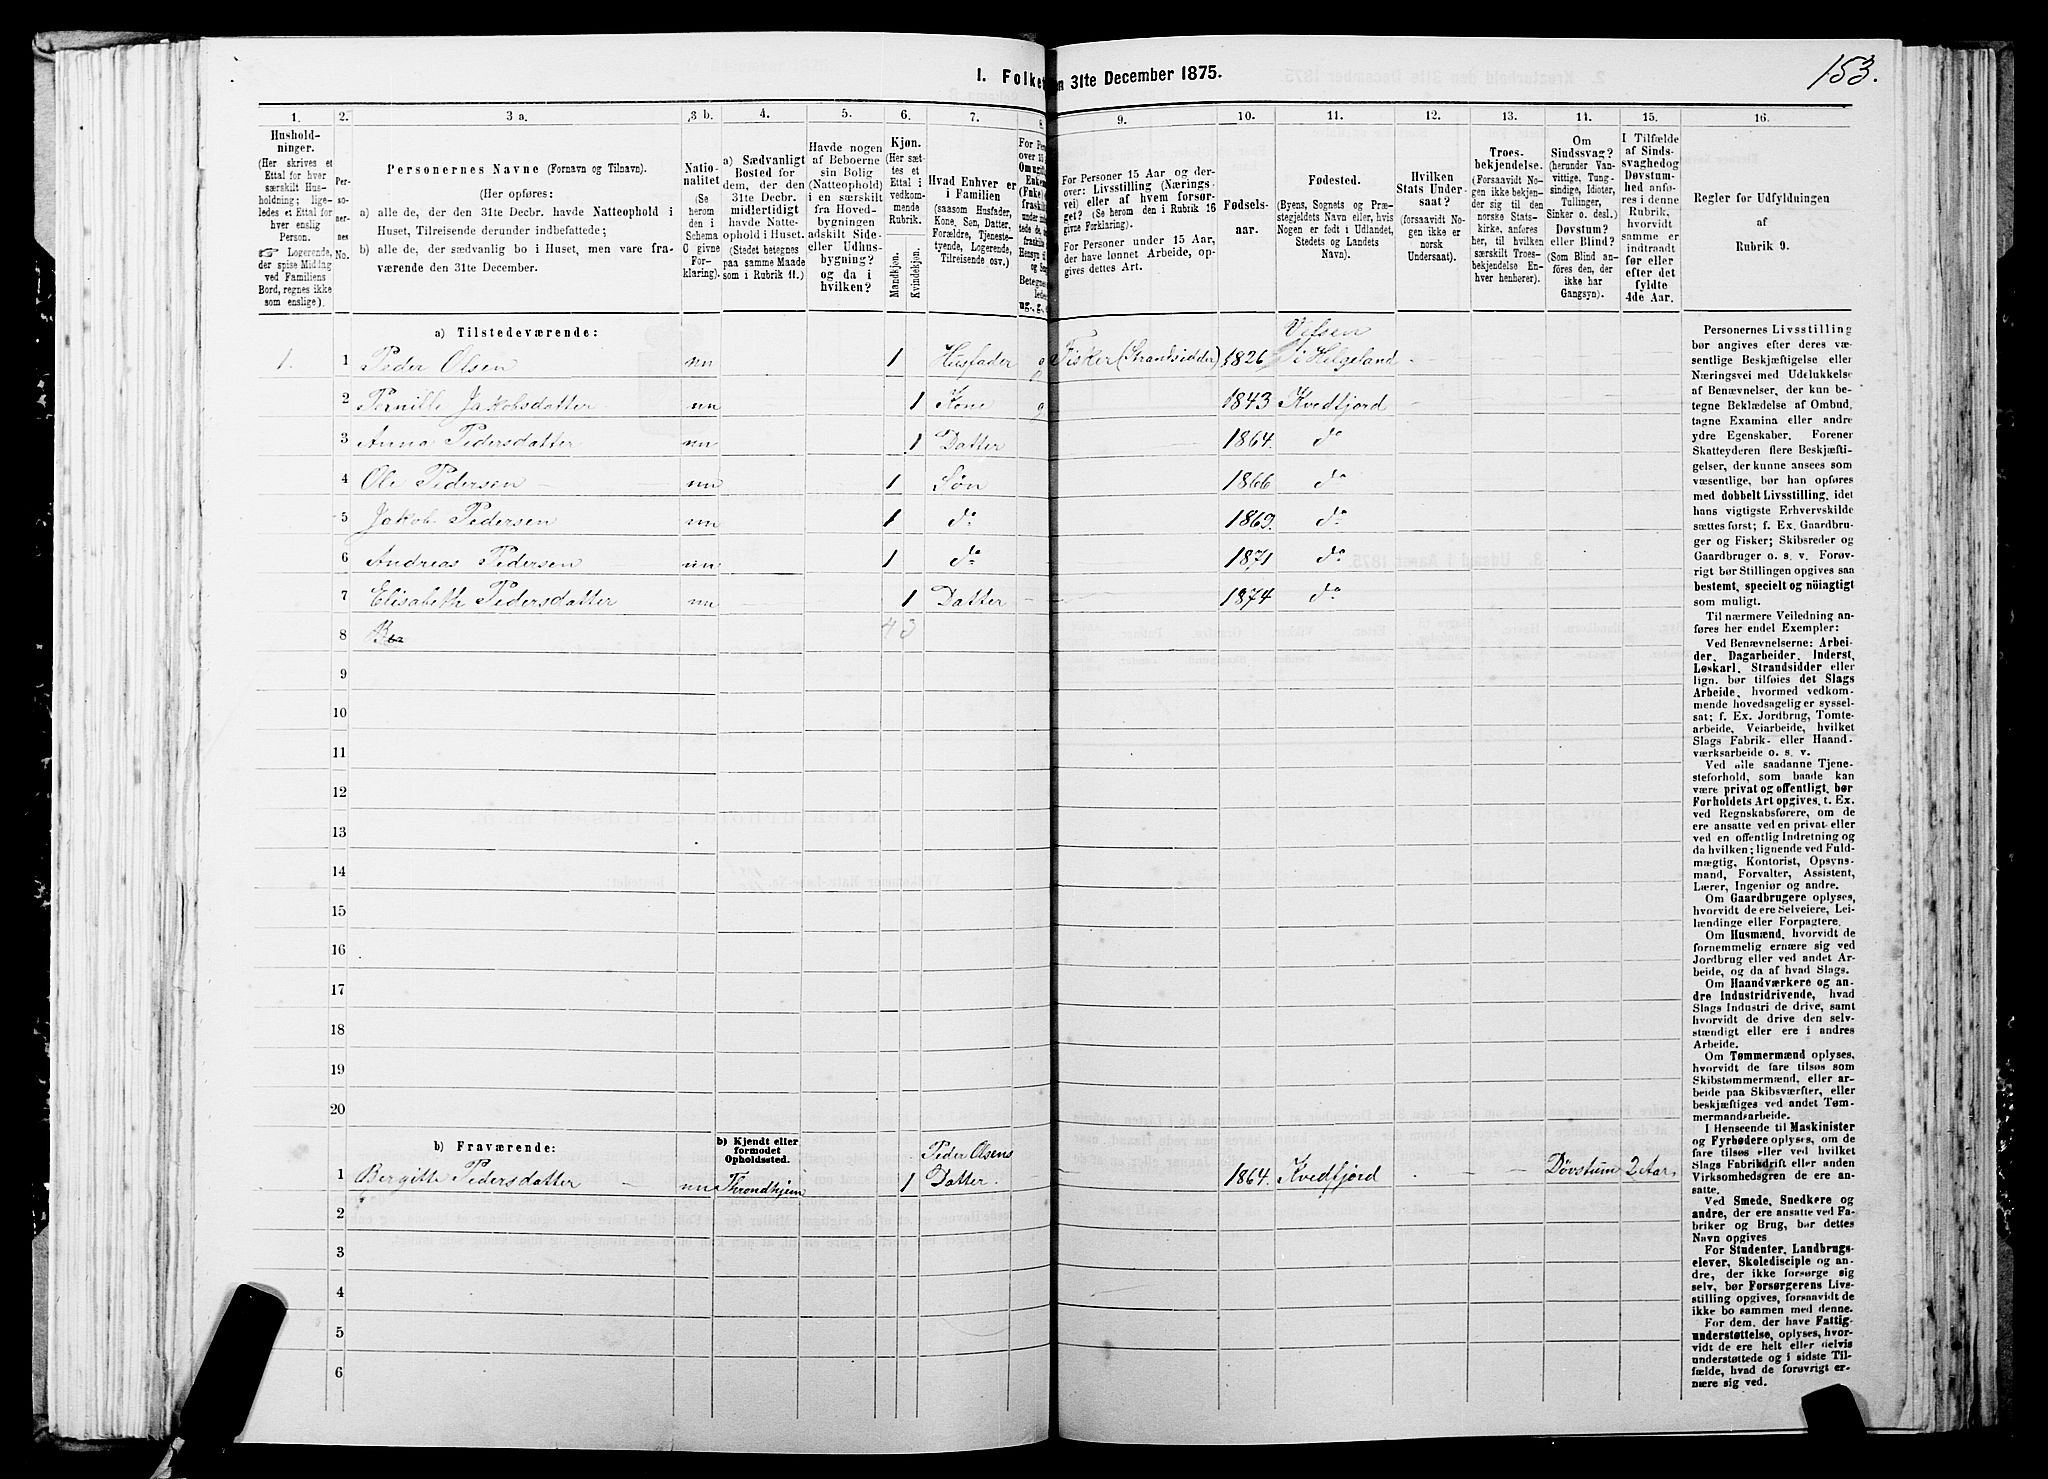 153.
I. Folket
n 31te December 1875.
1.
Hushold-
ninger.
(Her skrives et
Ettal for hver
særskilt Hus-
holdning; lige-
ledes et Ettal for
hver enslig
Person.
☞ Logerende,
der spise Middag
ved Familiens
Bord, regnes ikke
som enslige).
2.
Per-
so-
ner-
nes
No.
3 a.
Personernes Navne (Fornavn og Tilnavn).
(Her opføres:
a) alle de, der den 31te Decbr. havde Natteophold i
Huset, Tilreisende derunder indbefattede;
b) alle de, der sædvanlig bo i Huset, men vare fra-
værende den 31te December.
3 b.
Natio-
nalitet
(Se
herom
den i
Schema
C givne
For-
klaring).
4.
a) Sædvanligt
Bosted for
dem, der den
31te Decbr.
midlertidigt
havde Natte-
ophold i Huset.
(Stedet betegnes
paa samme Maade
som i Rubrik 11.)
5.
Havde nogen
af Beboerne
sin Bolig
(Natteophold)
i en særskilt
fra Hoved-
bygningen
adskilt Side-
eller Udhus-
bygning?
og da i
hvilken?
6.
Kjøn.
(Her sæt-
tes et
Ettal i
vedkom-
mende
Rubrik.
Mandkjøn.
Kvindekjøn.
7.
Hvad Enhver er
i Familien
(saasom Husfader,
Kone, Søn, Datter,
Forældre, Tjeneste-
tyende, Logerende,
Tilreisende osv.)
8.
9.
For Personer 15 Aar og der-
over: Livsstilling (Nærings-
vei) eller af hvem forsør-
get? (Se herom den i Rubrik 16
givne Forklaring).
For Personer under 15 Aar,
der have lønnet Arbeide, op-
gives dettes Art.
10.
Fødsels-
aar.
11.
Fødested.
(Byens, Sognets og Præ-
stegjeldets Navn eller, hvis
Nogen er født i Udlandet,
Stedets og Landets
Navn).
12.
Hvilken
Stats Under-
saat?
(forsaavidt No-
gen ikke er
norsk
Undersaat).
13.
Troes-
bekjendelse.
(Forsaavidt No-
gen ikke bekjen-
der sig til den
norske Stats-
kirke, anføres
her, til hvilken
særskilt Troes-
bekjendelse En-
hver henhører).
14.
Om
Sindssvag?
(herunder Van-
vittige, Tung-
sindige, Idioter,
Tullinger,
Sinker o. desl.)
Døvstum?
eller Blind?
(Som Blind an-
føres den, der
ikke har
Gangsyn).
15.
I Tilfælde
af Sinds-
svaghed og
Døvstum-
hed anfø-
res i denne
Rubrik,
hvorvidt
samme er
indtraadt
før eller
efter det
fyldte
4de Aar.
16.
Regler for Udfyldningen
af
Rubrik 9.
a) Tilstedeværende:
1. 1 Peder Olsen nn 1 Husfader g Fisker (Strandsidder) 1826 i Helgeland
2 Pernille Jakobsdatter nn 1 Kone g 1843 Kvedfjord
3 Anna Pedersdatter nn 1 Datter 1864. do
4 Ole Pedersen nn 1 Søn 1866 do
5 Jakob Pedersen nn 1 do 1869. do
6 Andreas Pedersen nn 1 do 1871 do
7 Elisabeth Pedersdatter nn 1 Datter 1874 do
8 4 3
9
10
11
12
13
14
15
16
17
18
19
20
b) Fraværende:
b) Kjendt eller
formodet
Opholdssted.
Peder Olsens
1 Bergitte Pedersdatter nn Throndhjem 1 Datter. 1864. Kvedfjord Døvstum 2 Aar
2
3
4
5
6
Personernes Livsstilling
bør angives efter deres væ-
sentlige Beskjæftigelse eller
Næringsvei med Udelukkelse
af Benævnelser, der kun be-
tegne Beklædelse af Ombud,
tagne Examina eller andre
ydre Egenskaber. Forener
Skatteyderen flere Beskjæfti-
gelser, der kunne ansees som
væsentlige, bør han opføres
med dobbelt Livsstilling, idet
hans vigtigste Erhvervskilde
sættes først; f. Ex. Gaardbru-
ger og Fisker; Skibsreder og
Gaardbruger o. s. v. Forøv-
rigt bør Stillingen opgives saa
bestemt, specielt og nöiagtigt
som muligt.
Til nærmere Veiledning an-
føres her endel Exempler:
Ved Benævnelserne: Arbei-
der, Dagarbeider, Inderst,
Løskarl, Strandsidder eller
lign. bør tilføies det Slags
Arbeide, hvormed vedkom-
mende hovedsagelig er syssel-
sat; f. Ex. Jordbrug, Tomte-
arbeide, Veiarbeide, hvilket
Slags Fabrik- eller Haand-
værksarbeide o. s. v.
Ved alle saadanne Tjene-
steforhold, som baade kan
være privat og offentligt, bør
Forholdets Art opgives, t. Ex.
ved Regnskabsførere, om de
ere ansatte ved en privat eller
ved en offentlig Indretning og
da hvilken; lignende ved Fuld-
mægtig, Kontorist, Opsyns-
mand, Forvalter, Assistent,
Lærer, Ingeniør og andre.
Om Gaardbrugere oplyses,
hvorvidt de ere Selveiere, Lei-
lændinge eller Forpagtere.
Om Husmænd, hvorvidt de
fornemmelig ernære sig ved
Jordbrug eller ved andet Ar-
beide, og da af hvad Slags.
Om Haandværkere og an-
dre Industridrivende, hvad
Slags Industri de drive, samt
hvorvidt de drive den selv-
stændigt eller ere i andres
Arbeide.
Om Tømmermænd oplyses,
hvorvidt de fare tilsøs som
Skibstømmermænd, eller ar-
beide paa Skibsværfter, eller
beskjæftiges ved andet Tøm-
mermandsarbeide.
I Henseende til Maskinister
og Fyrbødere oplyses, om de
fare tilsøs eller ved hvilket
Slags Fabrikdrift eller anden
Virksomhedsgren de ere an-
satte.
Ved Smede, Snedkere og
andre, der ere ansatte ved Fa-
briker og Brug, bør dettes
Navn opgives
For Studenter, Landbrugs-
elever, Skoledisciple og an-
dre, der ikke forsørge sig
selv, bør Forsørgerens Livs-
stilling opgives, forsaavidt de
ikke bo sammen med denne.
For dem, der have Fattig-
understøttelse, oplyses, hvor-
vidt de ere helt eller delvis
understøttede og i sidste Til-
fælde, hvad de forøvrigt er-
nære sig ved.